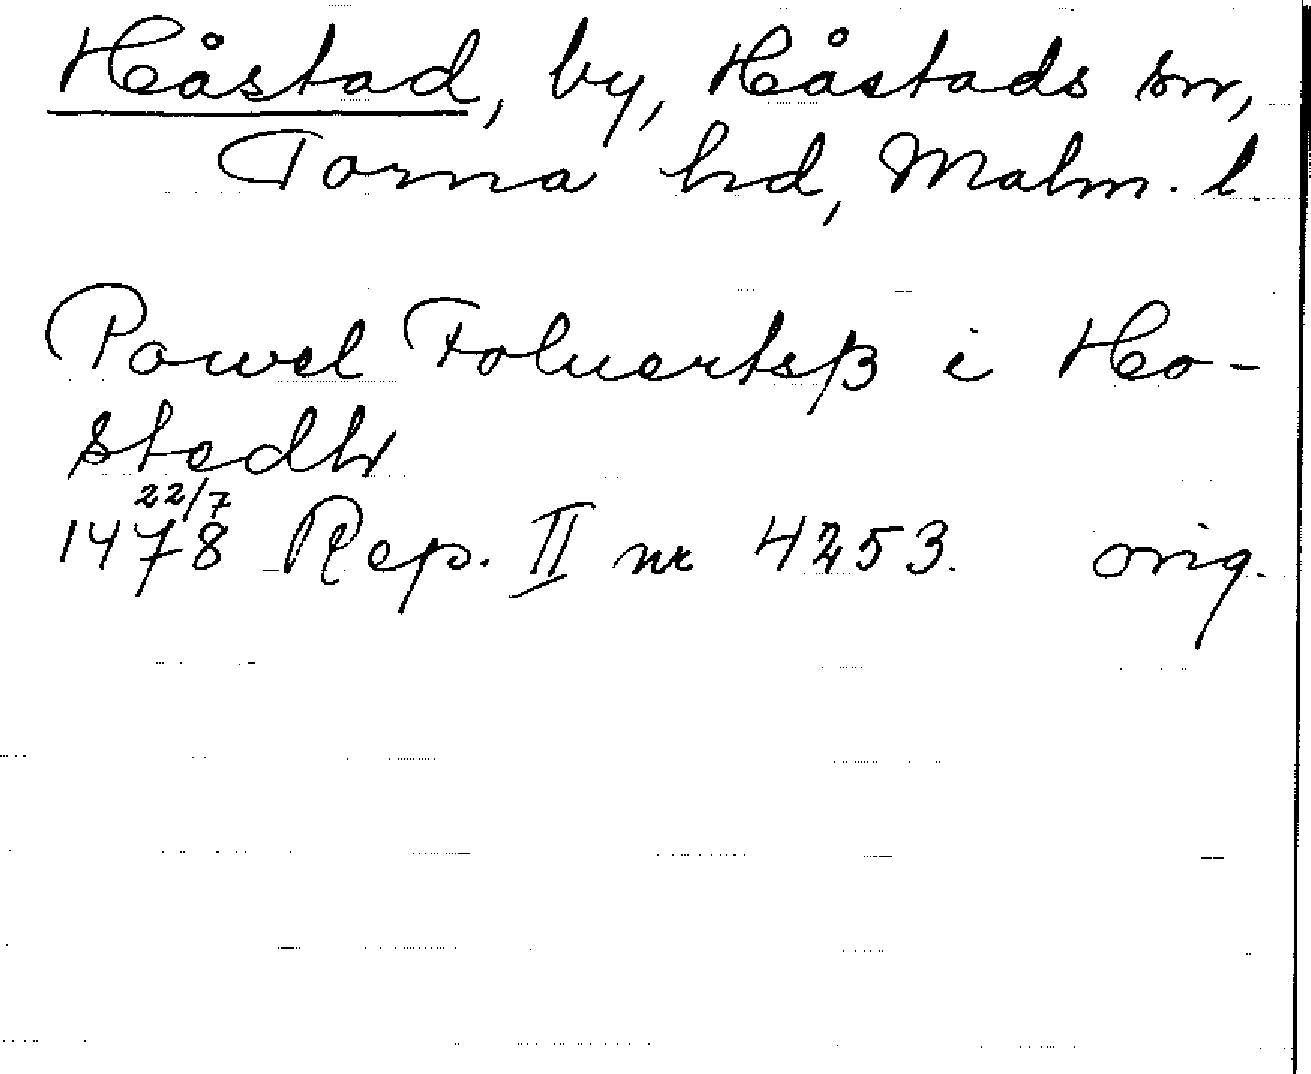 Håstad, by, Håstads sn,
Torna hd, Malm. l.
Powel Foluertsβ i Ho-
stedh
22/7
1478 Rep. II nr 4253. orig.